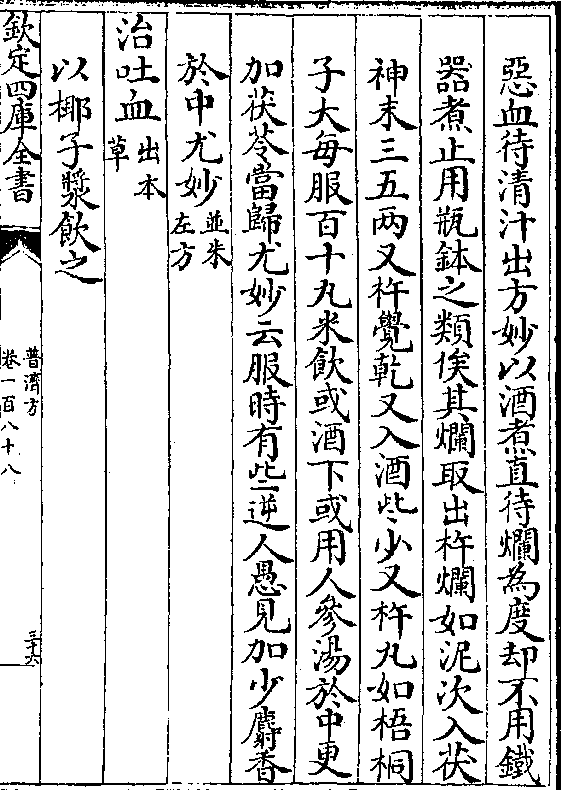 惡血待清汁出方妙以酒煮直待爛為度却不用鐵
器煮止用瓶鉢之類俟其爛取出杵爛如泥次入茯
神末三五两又杵覺乾又入酒些少又杵丸如梧桐
子大每服百十丸米飲或酒下或用人參湯於中更
加茯苓當歸尤妙云服時有些逆人愚見加少麝香
於中尤妙並朱左方
治吐血出本草
以椰子漿飲之
欽定四庫全書
普濟方
卷一百八十八
三十六